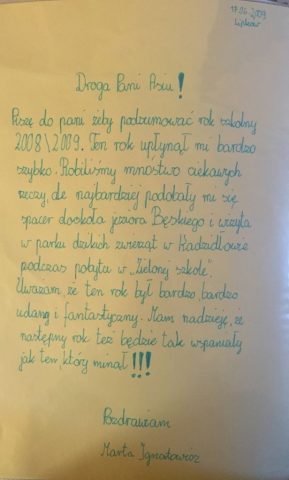 17.06.2009
Lipków
Droga Pani Asiu!
Piszę do pani żeby podsumować rok szkolny
2008\2009. Ten rok upłynął mi bardzo
szybko. Robiliśmy mnóstwo ciekawych
rzeczy, ale najbardziej podobały mi się
spacer dookoła jeziora Bęskiego i wizyta
w parku dzikich zwierząt w Kadzidłowie
podczas pobytu w „Zielonej szkole".
Uważam, że ten rok był bardzo, bardzo
udany i fantastyczny. Mam nadzieję, że
następny rok też będzie tak wspaniały
jak ten który minął!!!
Pozdrawiam
Marta